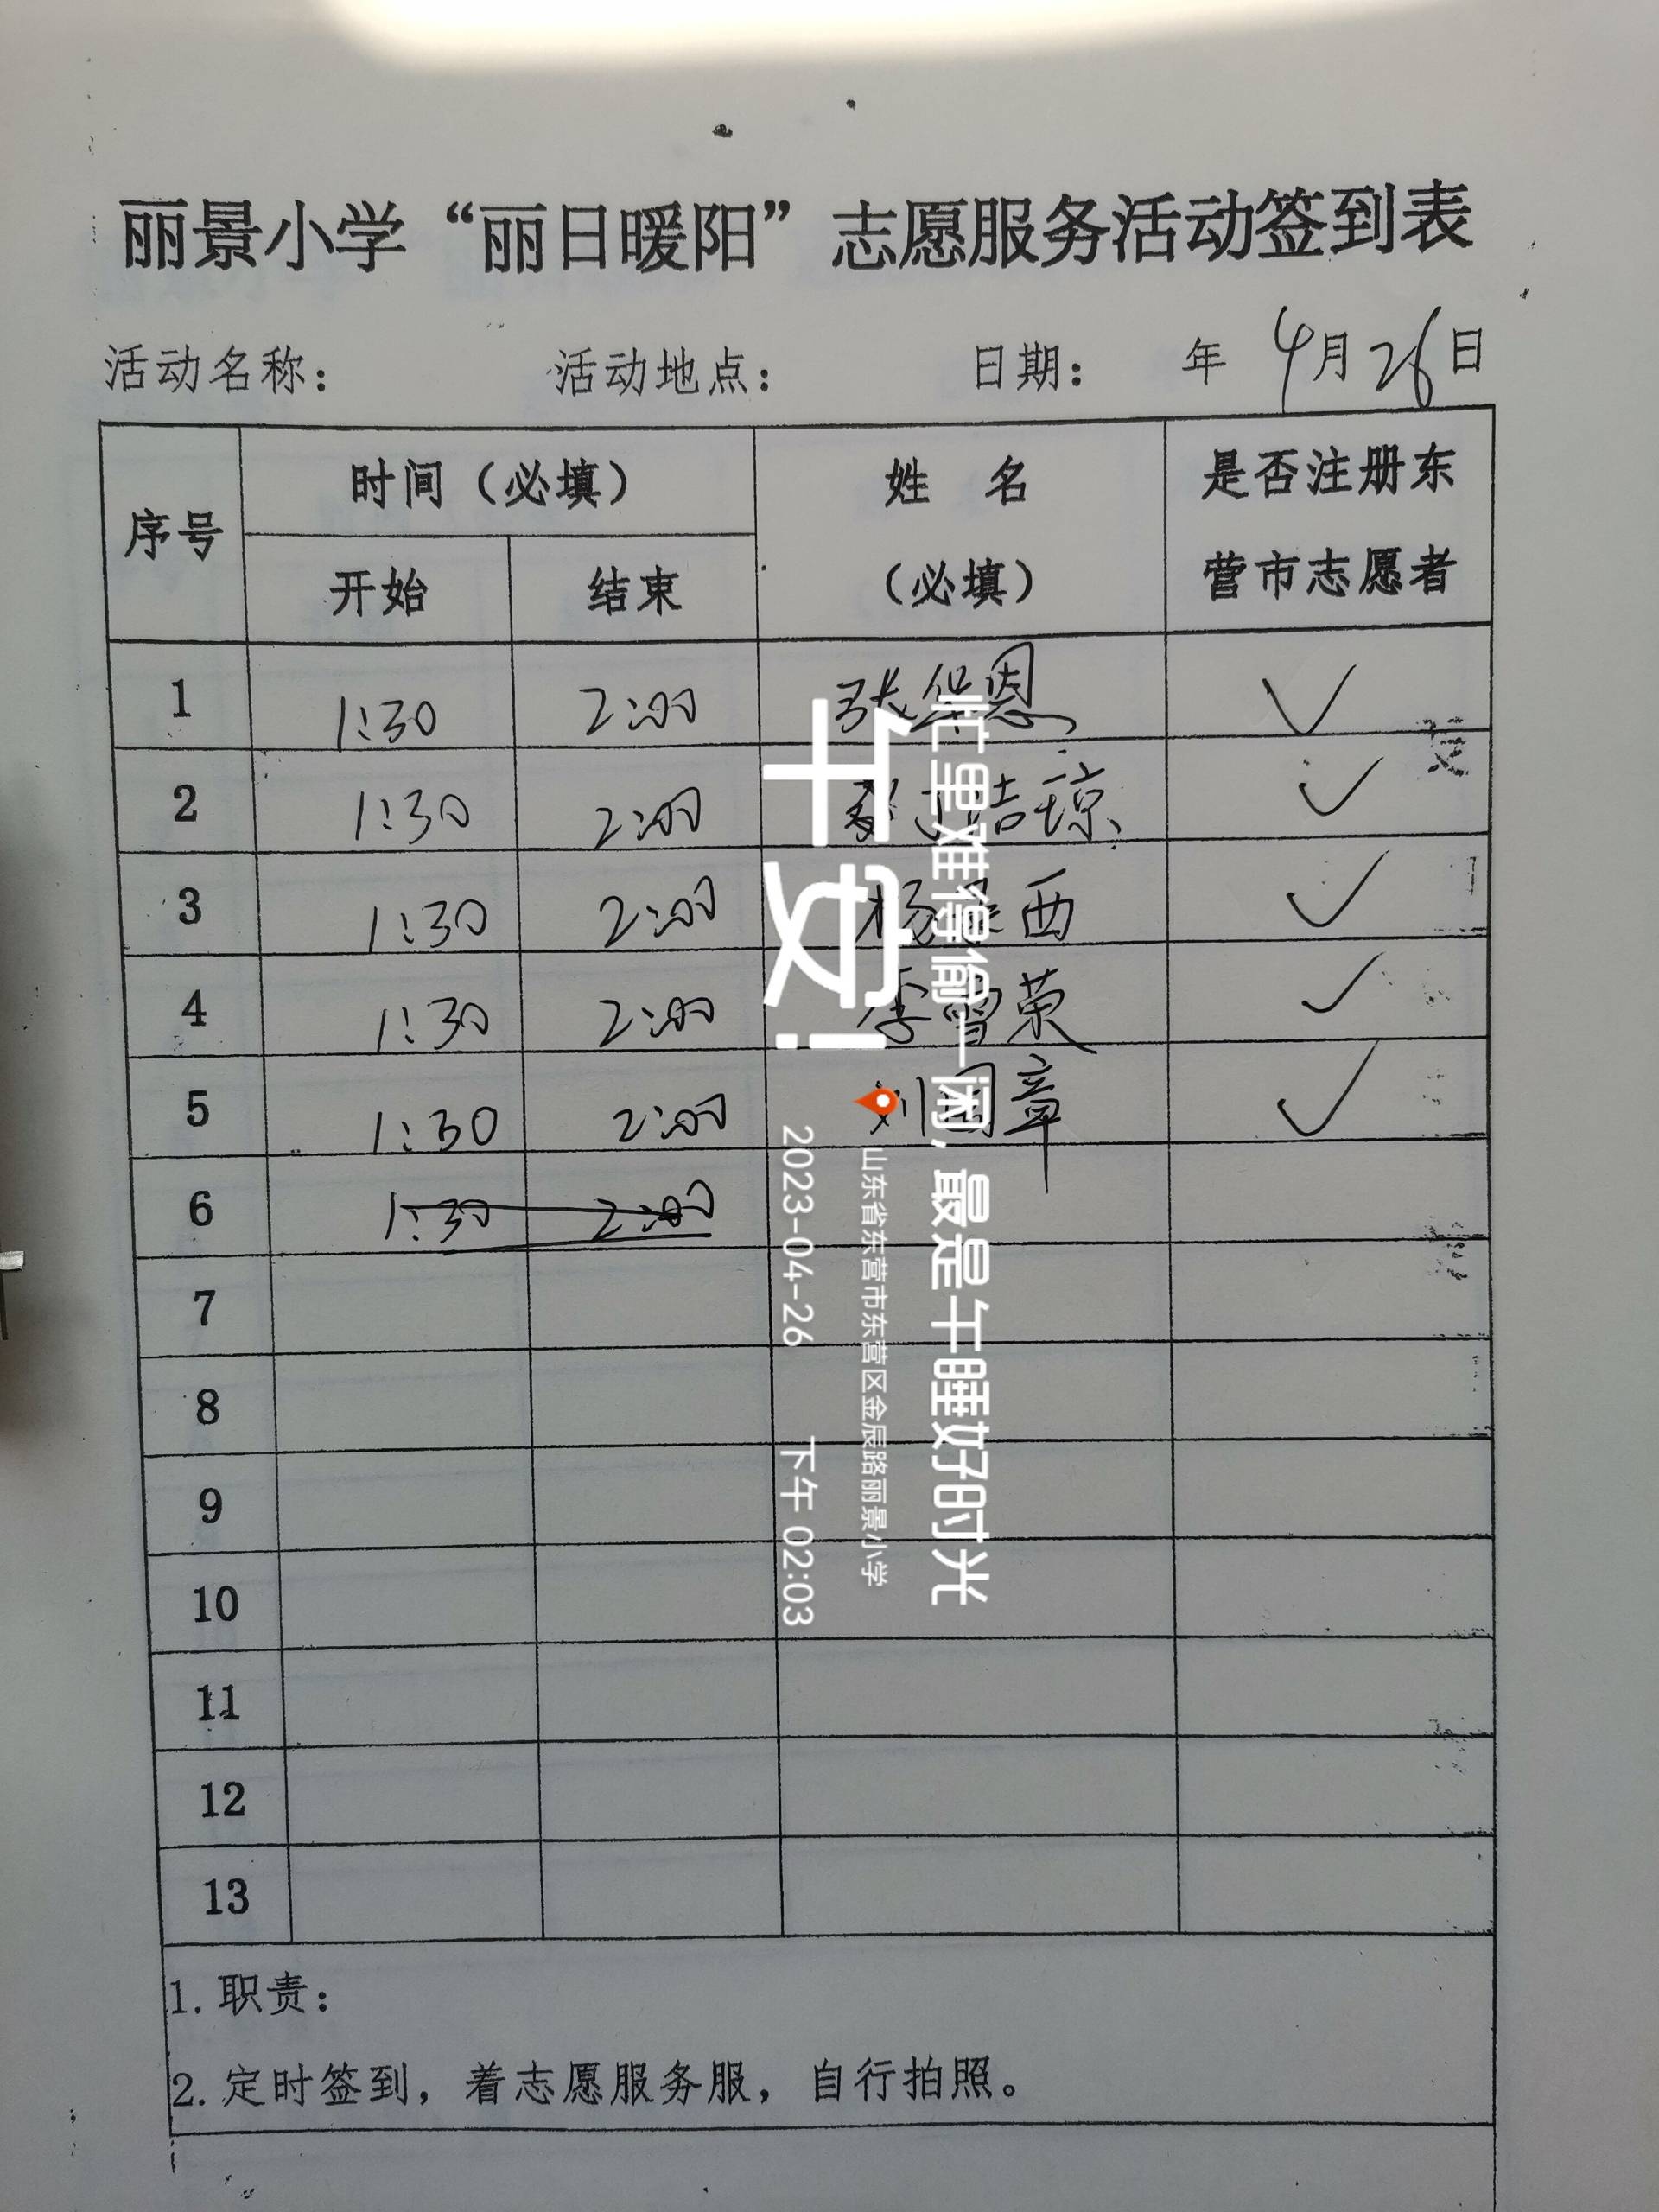 丽景小学“丽日暖阳”志愿服务活动签到表
活动名称： 活动地点： 日期： 年 4月26日
序号 时间（必填） 姓 名（必填） 是否注册东营市志愿者
开始 结束
1 1:30 2:00 张华恩 ✓
2 1:30 2:00 洁琼 ✓
3 1:30 2:00 杨 西 ✓
4 1:30 2:00 李雪荣 ✓
5 1:30 2:00 刘国章 ✓
6 1:30 2:00
7
8
9
10
11
12
13
1. 职责：
2. 定时签到，着志愿服务服，自行拍照。
午安！
忙里难得偷一闲，最是午睡好时光
山东省东营市东营区金辰路丽景小学
2023-04-26 下午 02:03